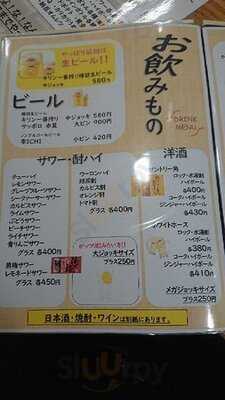 お飲みもの
DRINK MENU
やっぱり最初は
生ビール!!
キリン一番搾り樽詰生ビール
中ジョッキ 580円
ビール
樽詰生ビール
キリン一番搾り 中ジョッキ 580円
サッポロ 赤星 大瓶 680円
ノンアルコールビール
零ICHI 小瓶 420円
サワー・酎ハイ
チューハイ
レモンサワー
グレープフルーツサワー
シークァーサーサワー
カルピスサワー
ライムサワー
うめサワー
ぶどうサワー
ピーチサワー
ライチサワー
青りんごサワー
グラス 各400円
男梅サワー
レモネードサワー
グラス 各450円
ウーロンハイ
緑茶割
カルピス割
オレンジ割
トマト割
グラス 各400円
大ジョッキサイズ
プラス250円
洋酒
サントリー角
ロック・水割
ハイボール
各400円
コークハイボール
ジンジャーハイボール
各430円
ホワイトホース
ロック・水割
ハイボール
各380円
コークハイボール
ジンジャーハイボール
各410円
メガジョッキサイズ
プラス250円
日本酒・焼酎・ワインは別紙にあります。
Sluurpy